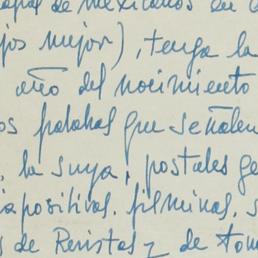 de mexicanos en
mejor), tenga la
año del nacimiento
palabras que señalen
la suya, postales ge
iapositivas, filminas, s
s de Revistas y de tom